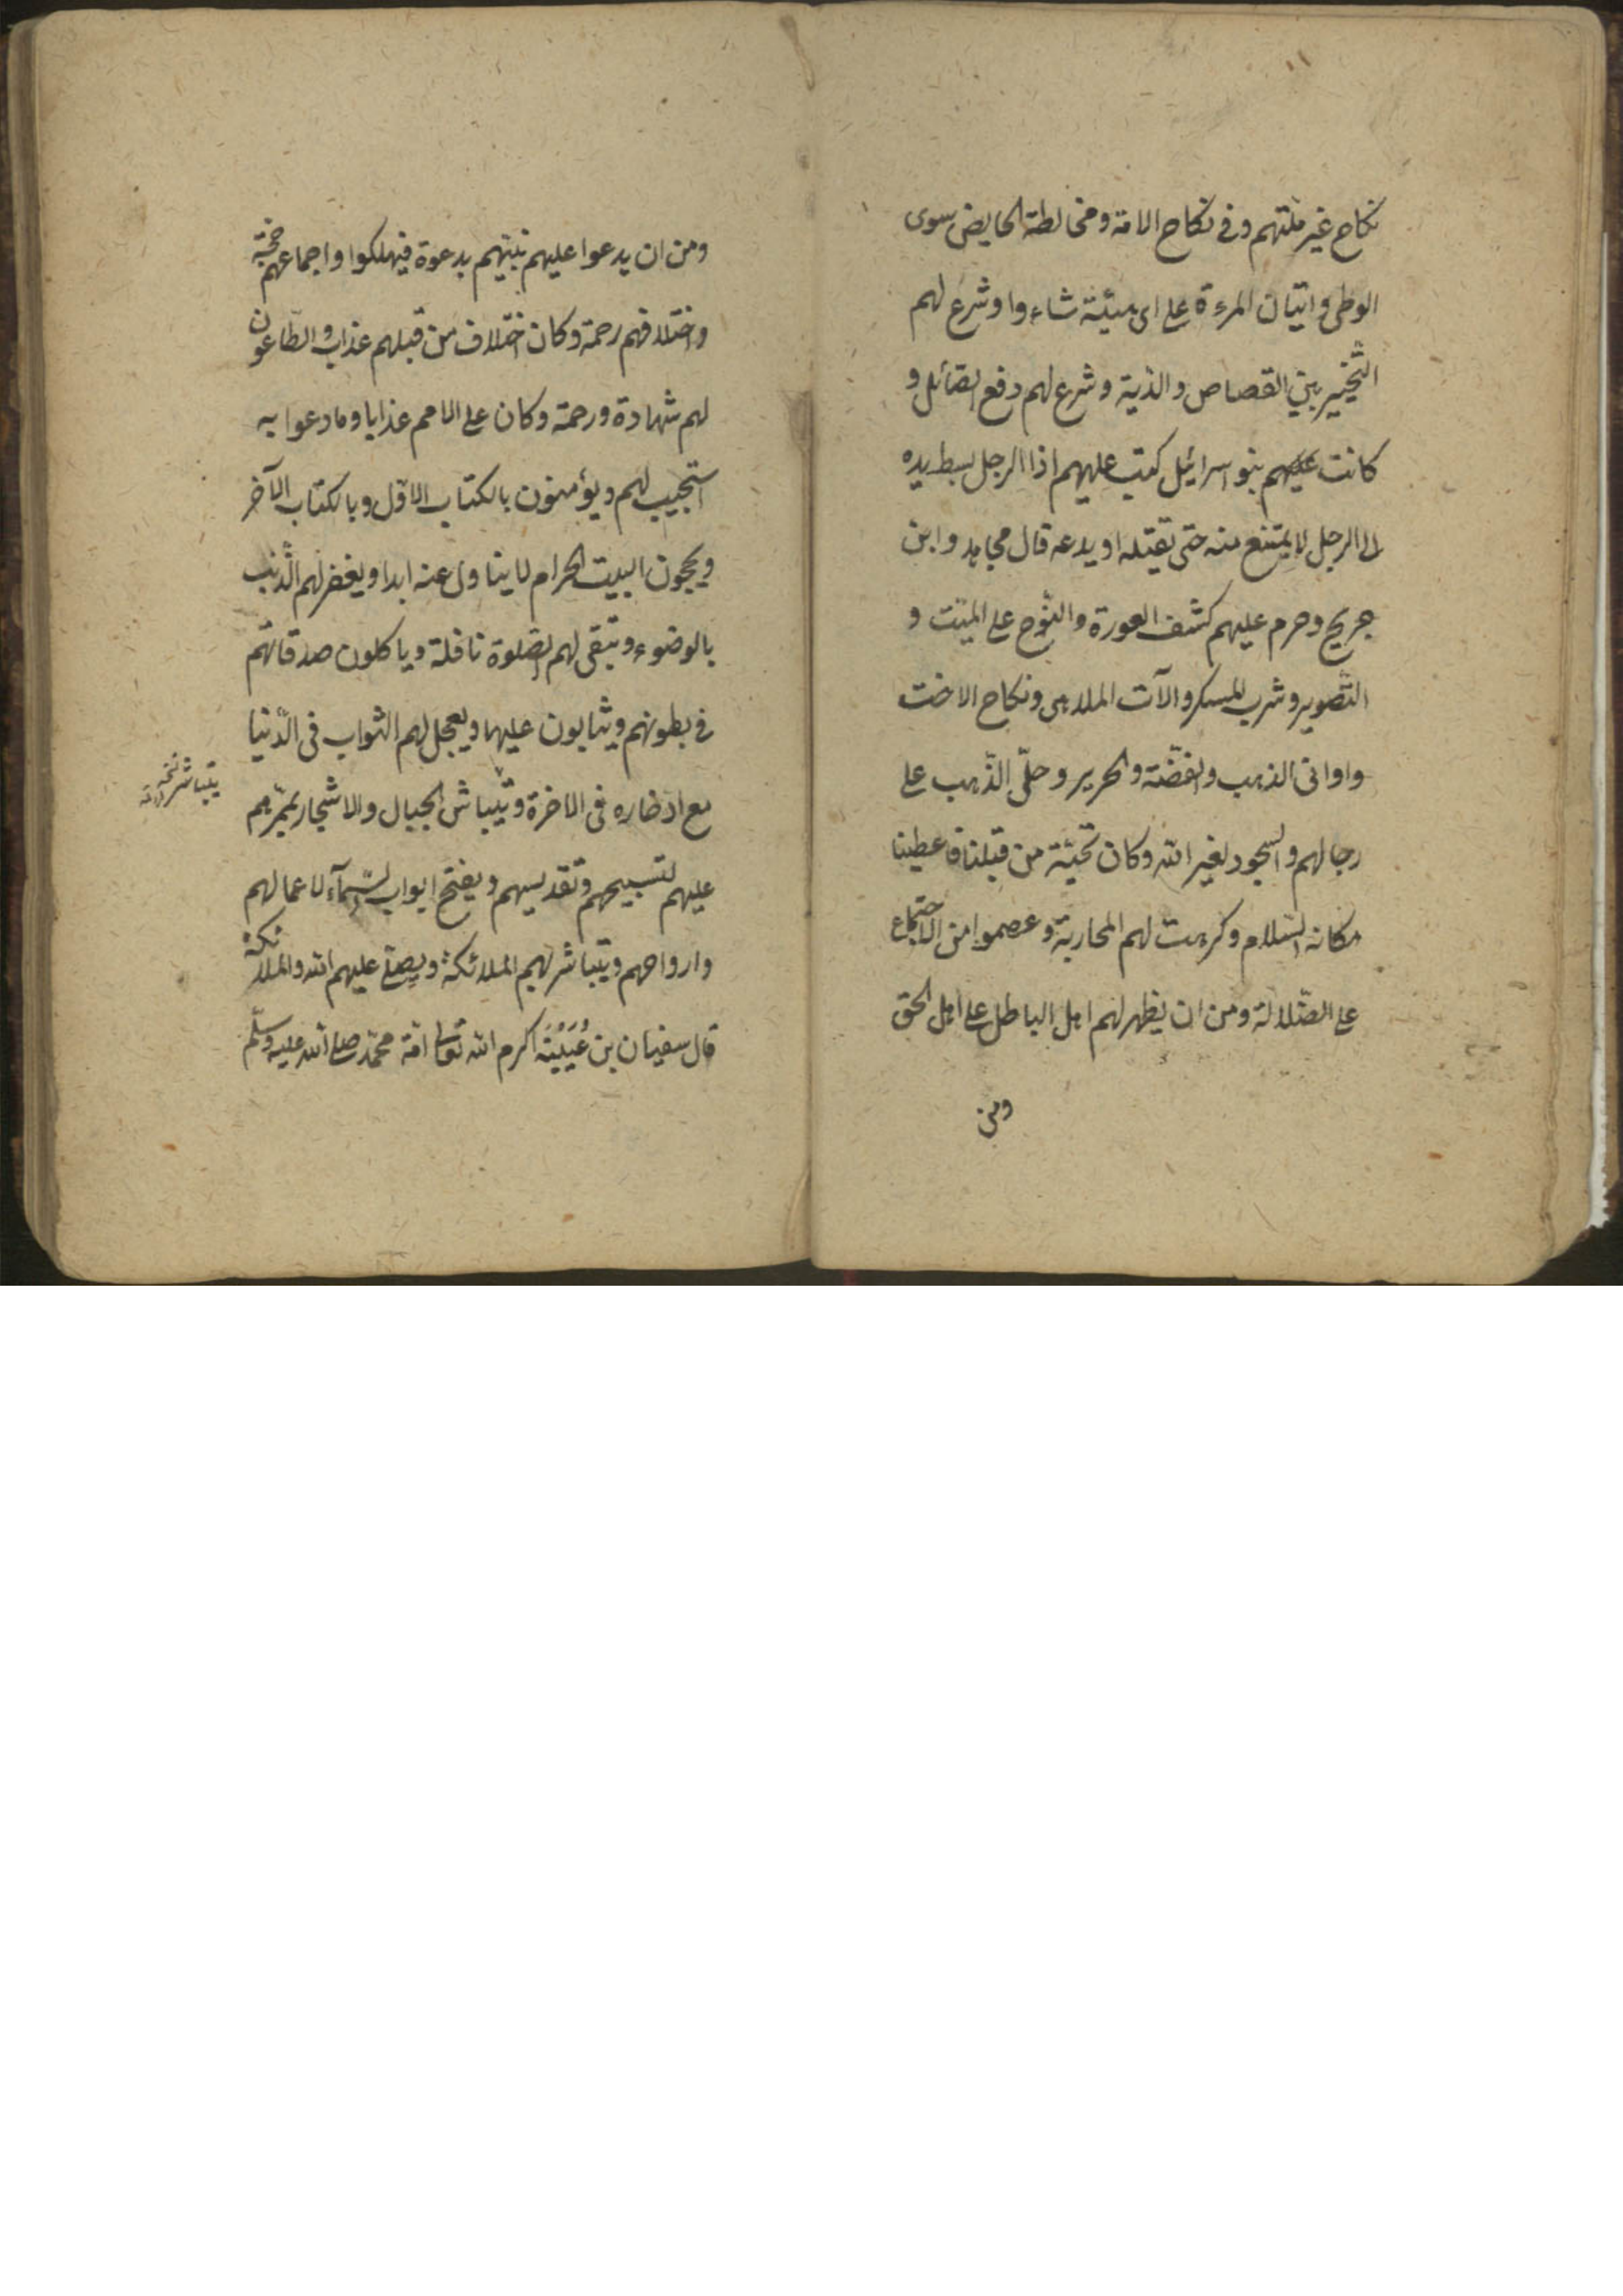 نكاح غير ملّتهم وفى نكاح الامة ومخالطة الحايض سوى
الوطى واتيان المرءة على اى هيئة شاءوا وشرع لهم
التّخيير بين القصاص والدية وشرع لهم دفع الصّائل و
كانت عليهم بنو اسرائيل كتب عليهم اذا الرجل بسط يده
الى الرجل لا يمتنع منه حتى يقتله او يدعه قال مجاهد وابن
جريج وحرم عليهم كشف العورة والنّوح على الميّت و
التّصوير وشرب المسكر والآت الملاهى ونكاح الاخت
واوانى الذهب والفضّة والحرير وحلّى الذّهب على
رجالهم والسجود لغير الله وكان تحيّة من قبلنا فاعطينا
مكانه السّلام وكرهت لهم المحاربة وعصموا من الاجتماع
على الضّلالة ومن ان يظهر لهم اهل الباطل على اهل الحق
ومن
ومن ان يدعوا عليهم نبيّهم بدعوة فيهلكوا واجماعهم حجّة
واختلافهم رحمة وكان اختلاف من قبلهم عذاب والطّاعون
لهم شهادة ورحمة وكان على الامم عذابا وما دعوا به
استجيب لهم ويؤمنون بالكتاب الاوّل وبالكتاب الآخر
ويحجون البيت الحرام لا يناول عنه ابدا ويغفر لهم الذّنب
بالوضوء وتبقى لهم الصّلوة نافلة وياكلون صدقاتهم
فى بطونهم ويثابون عليها ويعجل لهم الثواب فى الدّنيا
مع ادّخاره فى الاخرة وتيباش الجبال والاشجار بممرّهم
يتباشر نسخه
عليهم لتسبيحهم وتقديسهم ويفتح ابواب السّمآء لاعمالهم
وارواحهم ويتباشر لهم الملائكة ويصلّى عليهم الله والملائكة
قال سفيان بن عُيَيْنَة اكرم الله تعالى امّة محمّد صلى الله عليه وسلّم